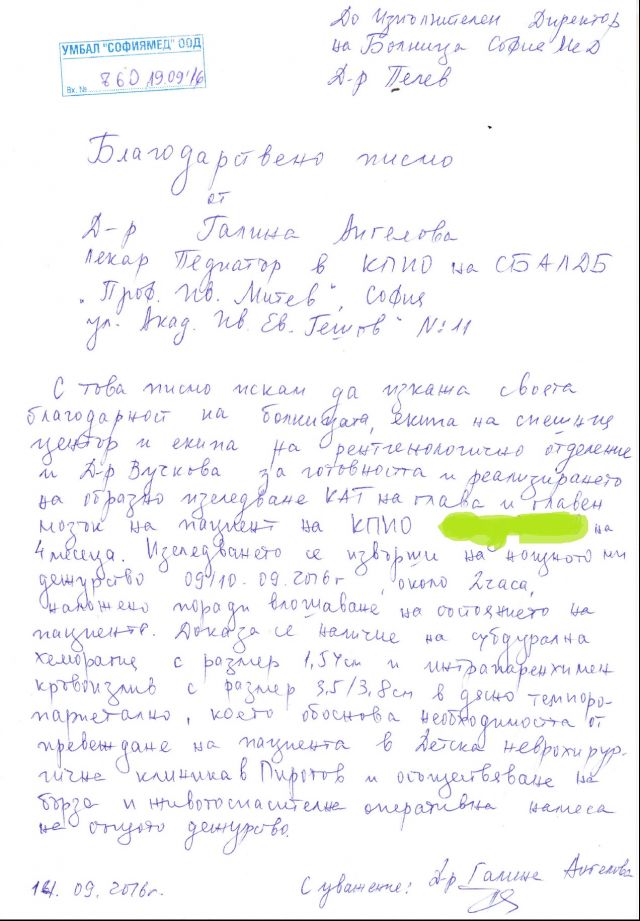 До Изпълнителен Директор
на Болница СофиаМед
Д-р Печев
УМБАЛ "СОФИЯМЕД" ООД
Вх. № 760 19.09.16
Благодарствено писмо
от
Д-р Галина Ангелова
лекар Педиатър в КПИО на СБАЛДБ
„Проф. Ив. Митев“, София
ул. Акад. Ив. Ев. Гешов“ № 11
С това писмо искам да изкажа своята
благодарност на болницата, екипа на спешния
център и екипа на рентгенологично отделение
и Д-р Вучкова за готовността и реализирането
на образно изследване КАТ на глава и главен
мозък на пациент на КПИО на
4 месеца. Изследването се извърши на нощното ми
дежурство 09/10.09.2016г, около 2 часа,
наложено поради влошаване на състоянието на
пациента. Доказа се наличие на субдурална
хеморагия с размер 1,54см и интрапаренхимен
кръвоизлив с размер 3,5/3,8см в дясно темпоро-
париетално, което обоснова необходимостта от
превеждане на пациента в Детска неврохирур-
гична клиника в Пирогов и осъществяване на
бърза и животоспасителна оперативна намеса
на същото дежурство.
14.09.2016г. С уважение: Д-р Галина Ангелова